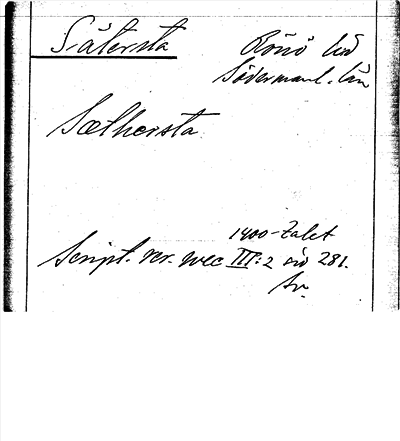 Sätersta
Rönö hd
Södermanl. län
Sælhersta
1400-talet
Script. rer. svec III:2 sid 281.
Sv.